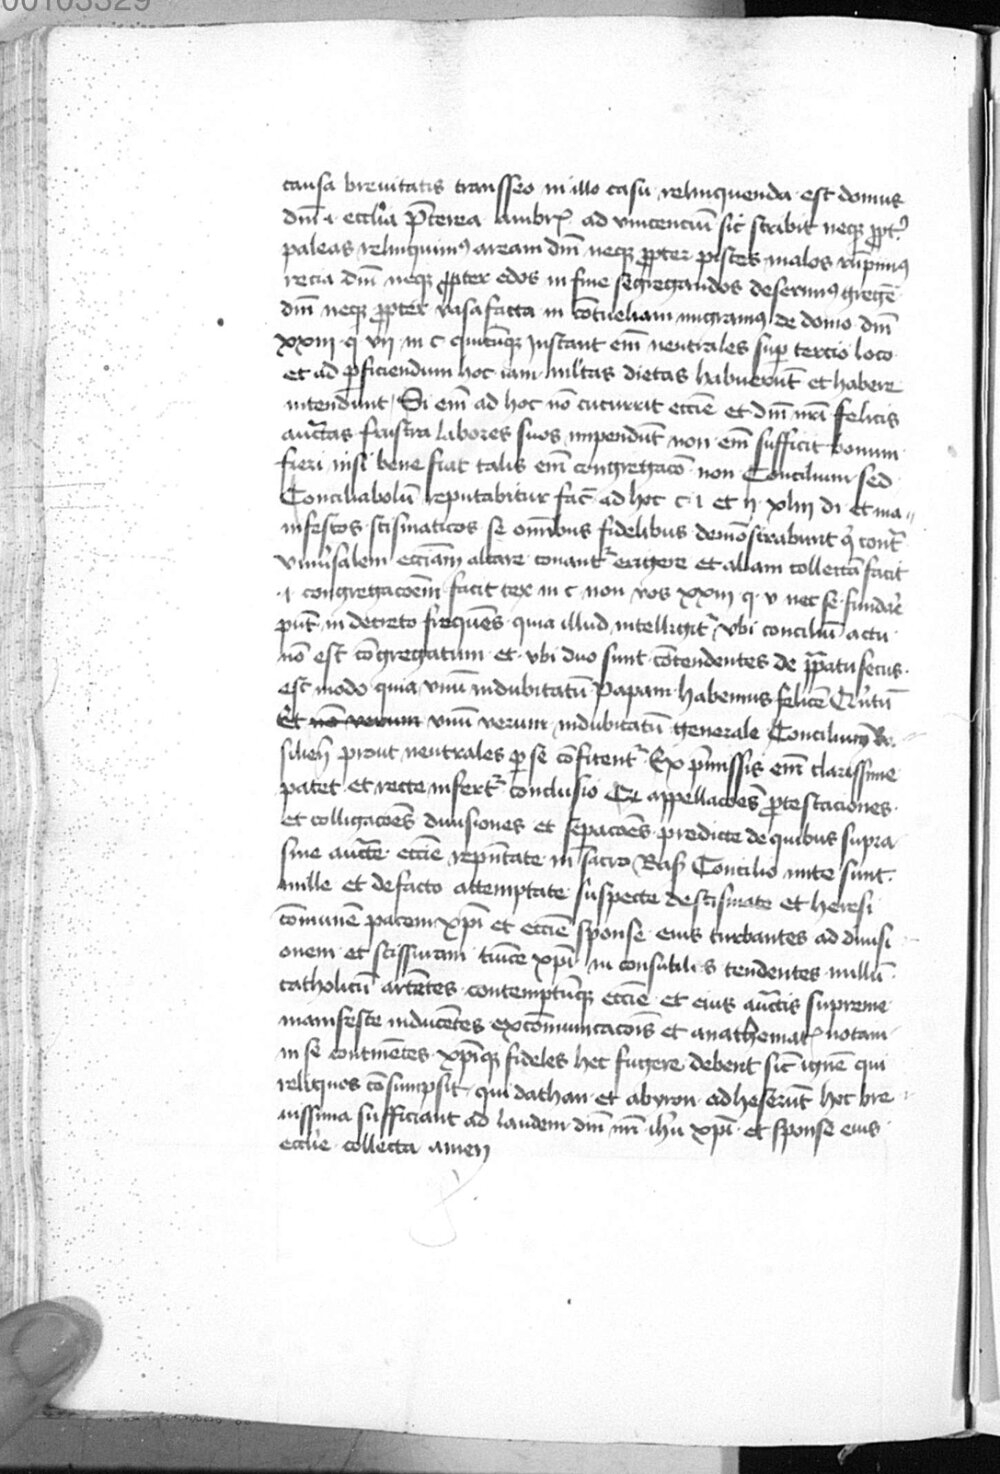 00103329
causa breuitatis transseo in illo casu relinquenda est domus
dnī .i. ecclīa Pͤterea Ambrꝰ ad vincenciū sic̄ scribit neqꝫ ꝓpt̾
paleas relinquimꝰ aream dnī neqꝫ ꝓpter pisces malos rūpimꝰ
recia dnī neqꝫ ꝓpter edos in fine segregandos deserimꝰ gregē
dnī neqꝫ ꝓpter vasa facta in cōtueliam migramꝰ de domo dnī
xxiii q vii in c quicūqꝫ Instant em̄ neutrales suꝑ tercio loco
et ad ꝑficiendum hoc iam ml̄tas dietas habuerūt et habere
intendunt / Si em̄ ad hoc nō cucurrit ecciē et dnī nrī felicis
auc̄tas frustra labores suos impendūt non em̄ sufficit bonum
fieri nisi bene fiat talis em̄ congregacō non Concilium sed
Conciliabolū reputabitur fac̄ ad hoc c . i et ii xliiii di et ma〃
nifestos scismaticos se omībus fidelibus demōstrabunt qͥ cont̾
vniu̾salem ecciam altare conant̾ erigere et aliam collectā facit
.i. congregacoēm facit tex in c non vos xxiii q v nec se fundare
pn̄t in decreto frequēs quia illud intelligit̾ vbi conciliū actu
nō est cōgregatum et vbi duo sunt cōtendentes de ꝑpatu secus
est modo quia vnū indubitatū Papam habemus felicē Qn̄tū
Et nō verum vnū verum indubitatū generale Concilium Ba
silien̄ prout neutrales ꝑ se cōfitent̾ Ex p̄missis em̄ clarissime
patet et recte infert̾ conclusio Qͥ appellacōes ꝓtestaciones
et colligacōes diuisiones et seꝑacōes predicte de quibus supra
sine auctͤ ecciē rep̄ntate in sacro Basͥ Concilio inite sunt
nulle et de facto attemptate suspecte de scismate et heresi
cōmunē pacem xp̄i et ecciē sponse eius turbantes ad diuisi
onem et scissuram tunice xp̄i in consutilis tendentes nullū
catholicū artētes contemptūqꝫ ecciē et eius auc̄tis supreme
manifeste inducētes excōmunicacōis et anathematꝭ notam
in se continētes xp̄iqꝫ fideles hec fugere debent sic̄ ignē qui
reliquos cōsumpsit qui dathan et abyron adheserūt hec bre
uissima sufficiant ad laudem dnī nrī ih̄u xp̄i et sponse eius
ecclīe collecta amen